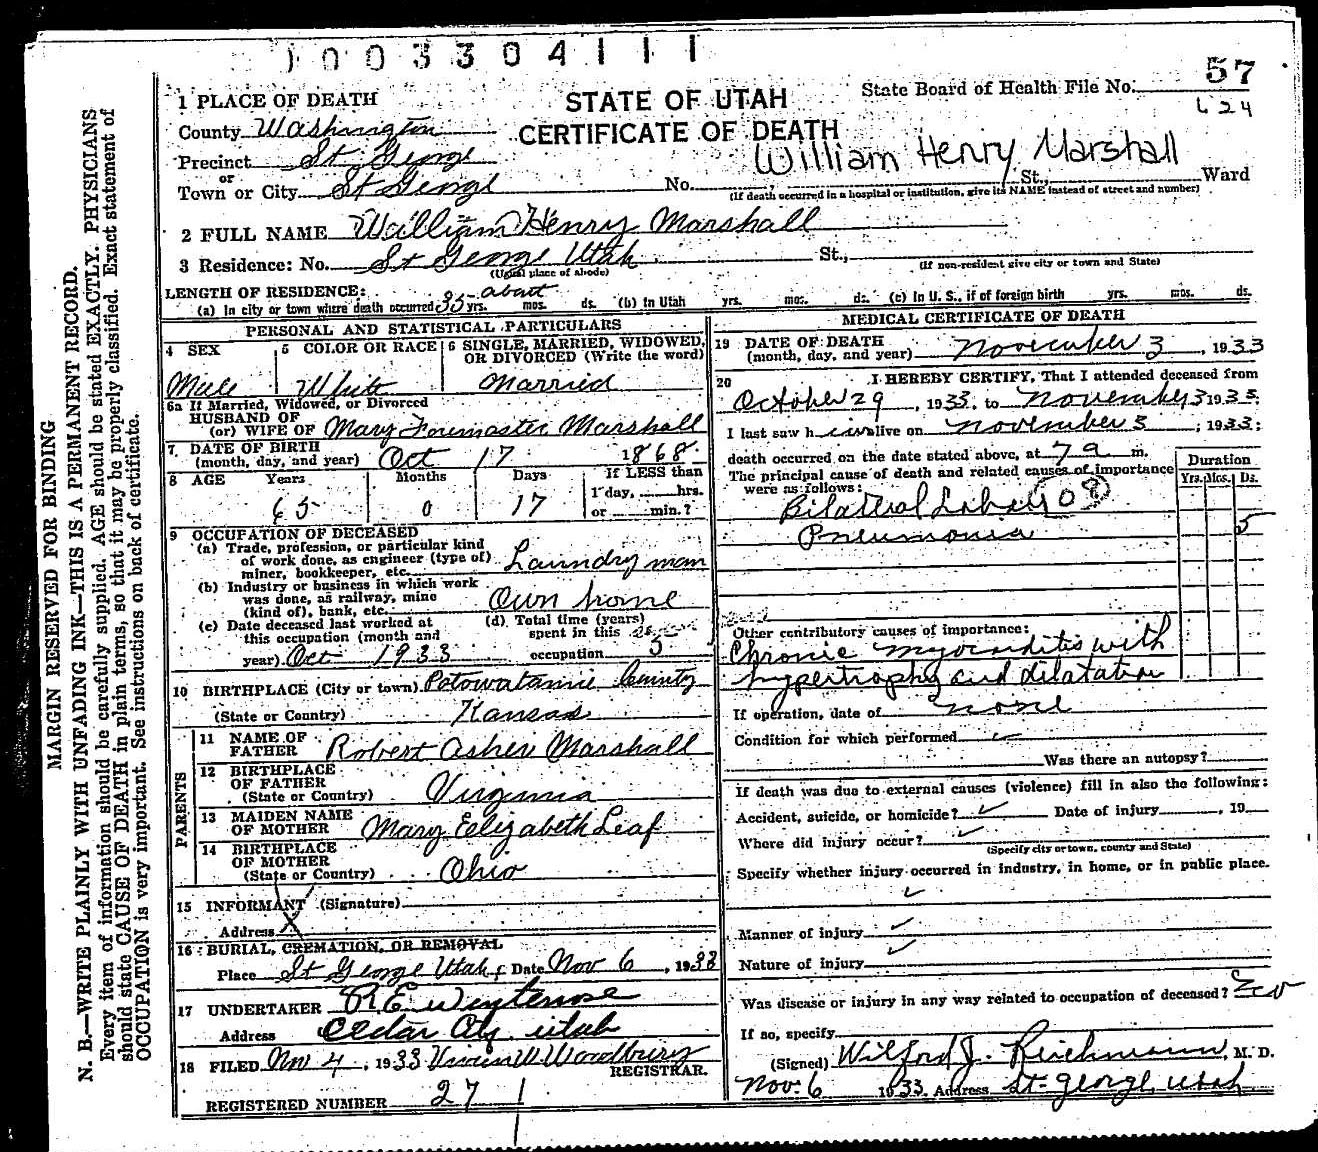 1003304111
57
State Board of Health File No.
624
STATE OF UTAH
CERTIFICATE OF DEATH
William Henry Marshall
1 PLACE OF DEATH
County Washington
Precinct St George
or
Town or City St George No. St., Ward
(If death occurred in a hospital or institution, give its NAME instead of street and number)
2 FULL NAME William Henry Marshall
3 Residence: No. St George Utah St.,
(Usual place of abode) (If non-resident give city or town and State)
LENGTH OF RESIDENCE: about
(a) In city or town where death occurred 35 yrs. mos. ds. (b) In Utah yrs. mos. ds. (c) In U. S., if of foreign birth yrs. mos. ds.
PERSONAL AND STATISTICAL PARTICULARS
4 SEX 5 COLOR OR RACE 6 SINGLE, MARRIED, WIDOWED, OR DIVORCED (Write the word)
Male White Married
6a If Married, Widowed, or Divorced
HUSBAND OF
(or) WIFE OF Mary Foremaster Marshall
7 DATE OF BIRTH
(month, day, and year) Oct 17 1868
8 AGE Years Months Days If LESS than
1 day, hrs.
65 0 17 or min.?
9 OCCUPATION OF DECEASED
(a) Trade, profession, or particular kind
of work done, as engineer (type of)
miner, bookkeeper, etc. Laundry man
(b) Industry or business in which work
was done, as railway, mine
(kind of), bank, etc. Own home
(c) Date deceased last worked at
this occupation (month and
year) Oct 1933
(d) Total time (years)
spent in this
occupation 5
10 BIRTHPLACE (City or town) Potowatamie County
(State or Country) Kansas
PARENTS
11 NAME OF
FATHER Robert Asher Marshall
12 BIRTHPLACE
OF FATHER
(State or Country) Virginia
13 MAIDEN NAME
OF MOTHER Mary Elizabeth Leaf
14 BIRTHPLACE
OF MOTHER
(State or Country) Ohio
15 INFORMANT (Signature)
Address X
16 BURIAL, CREMATION, OR REMOVAL
Place St George Utah Date Nov 6, 1933
17 UNDERTAKER R E
Address Cedar City Utah
18 FILED Nov 4, 1933 W Woodbury
REGISTRAR.
REGISTERED NUMBER 27
MEDICAL CERTIFICATE OF DEATH
19 DATE OF DEATH
(month, day, and year) November 3, 1933
20 I HEREBY CERTIFY, That I attended deceased from
October 29, 1933. to November 3 1933.
I last saw him alive on November 3; 1933;
death occurred on the date stated above, at 7 a m.
The principal cause of death and related causes of importance
were as follows:
Duration
Yrs. Mos. Ds.
Bilateral Lobar 108
Pneumonia 5
Other contributory causes of importance:
Chronic myocarditis with
hypertrophy and dilatation
If operation, date of none
Condition for which performed
Was there an autopsy?
If death was due to external causes (violence) fill in also the following:
Accident, suicide, or homicide? Date of injury, 19
Where did injury occur?
(Specify city or town, county and State)
Specify whether injury occurred in industry, in home, or in public place.
Manner of injury
Nature of injury
Was disease or injury in any way related to occupation of deceased?
If so, specify
(Signed) Wilford J. Reichmann, M. D.
Nov. 6 1933. Address St. George, Utah
MARGIN RESERVED FOR BINDING
N. B.—WRITE PLAINLY WITH UNFADING INK—THIS IS A PERMANENT RECORD.
Every item of information should be carefully supplied. AGE should be stated EXACTLY. PHYSICIANS
should state CAUSE OF DEATH in plain terms, so that it may be properly classified. Exact statement of
OCCUPATION is very important. See instructions on back of certificate.